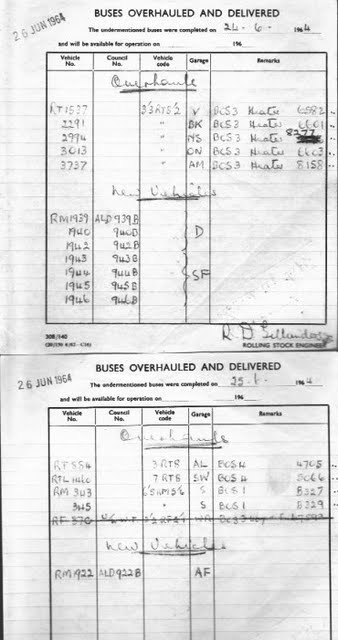 26 JUN 1964
BUSES OVERHAULED AND DELIVERED
The undermentioned buses were completed on 24 . 6 . 1964
and will be available for operation on 196
Vehicle No. Council No. Vehicle code Garage Remarks
Overhauls
RT1537 V BCS3 Heater 6582
2291 " BK BCS3 Heater 6601
2994 " NS BCS3 Heater 8277
3013 " ON BCS3 Heater 6603
3737 " AM BCS3 Heater 8158
New Vehicles
RM1939 ALD939B
1940 940B D
1942 942B
1943 943B
1944 944B SF
1945 945B
1946 946B
30B/940
R. D.
ROLLING STOCK ENGINEER
26 JUN 1964
BUSES OVERHAULED AND DELIVERED
The undermentioned buses were completed on 25 . 6 . 1964
and will be available for operation on 196
Vehicle No. Council No. Vehicle code Garage Remarks
Overhauls
RF554 AL BCS4 4705
7RT8 SW BCS4
RM 343 S BCS1 8327
345 " S BCS1 8329
New Vehicles
RM1922 ALD922B AF